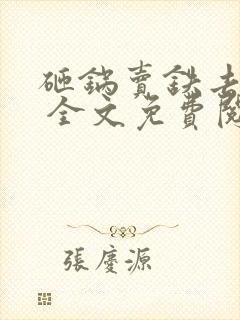 砸鍋賣鉄去
全文免費閱
張慶源